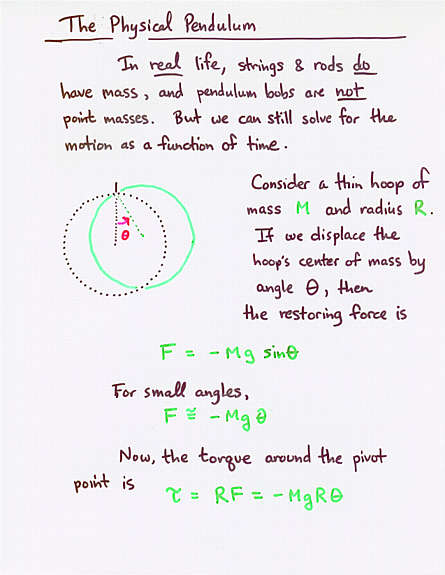 The Physical Pendulum
In real life, strings & rods do
have mass, and pendulum bobs are not
point masses. But we can still solve for the
motion as a function of time.
Consider a thin hoop of
mass M and radius R.
If we displace the
hoop's center of mass by
angle θ, then
the restoring force is
θ
F = -Mg sinθ
For small angles,
F ≅ -Mgθ
Now, the torque around the pivot
point is
τ = RF = -MgRθ